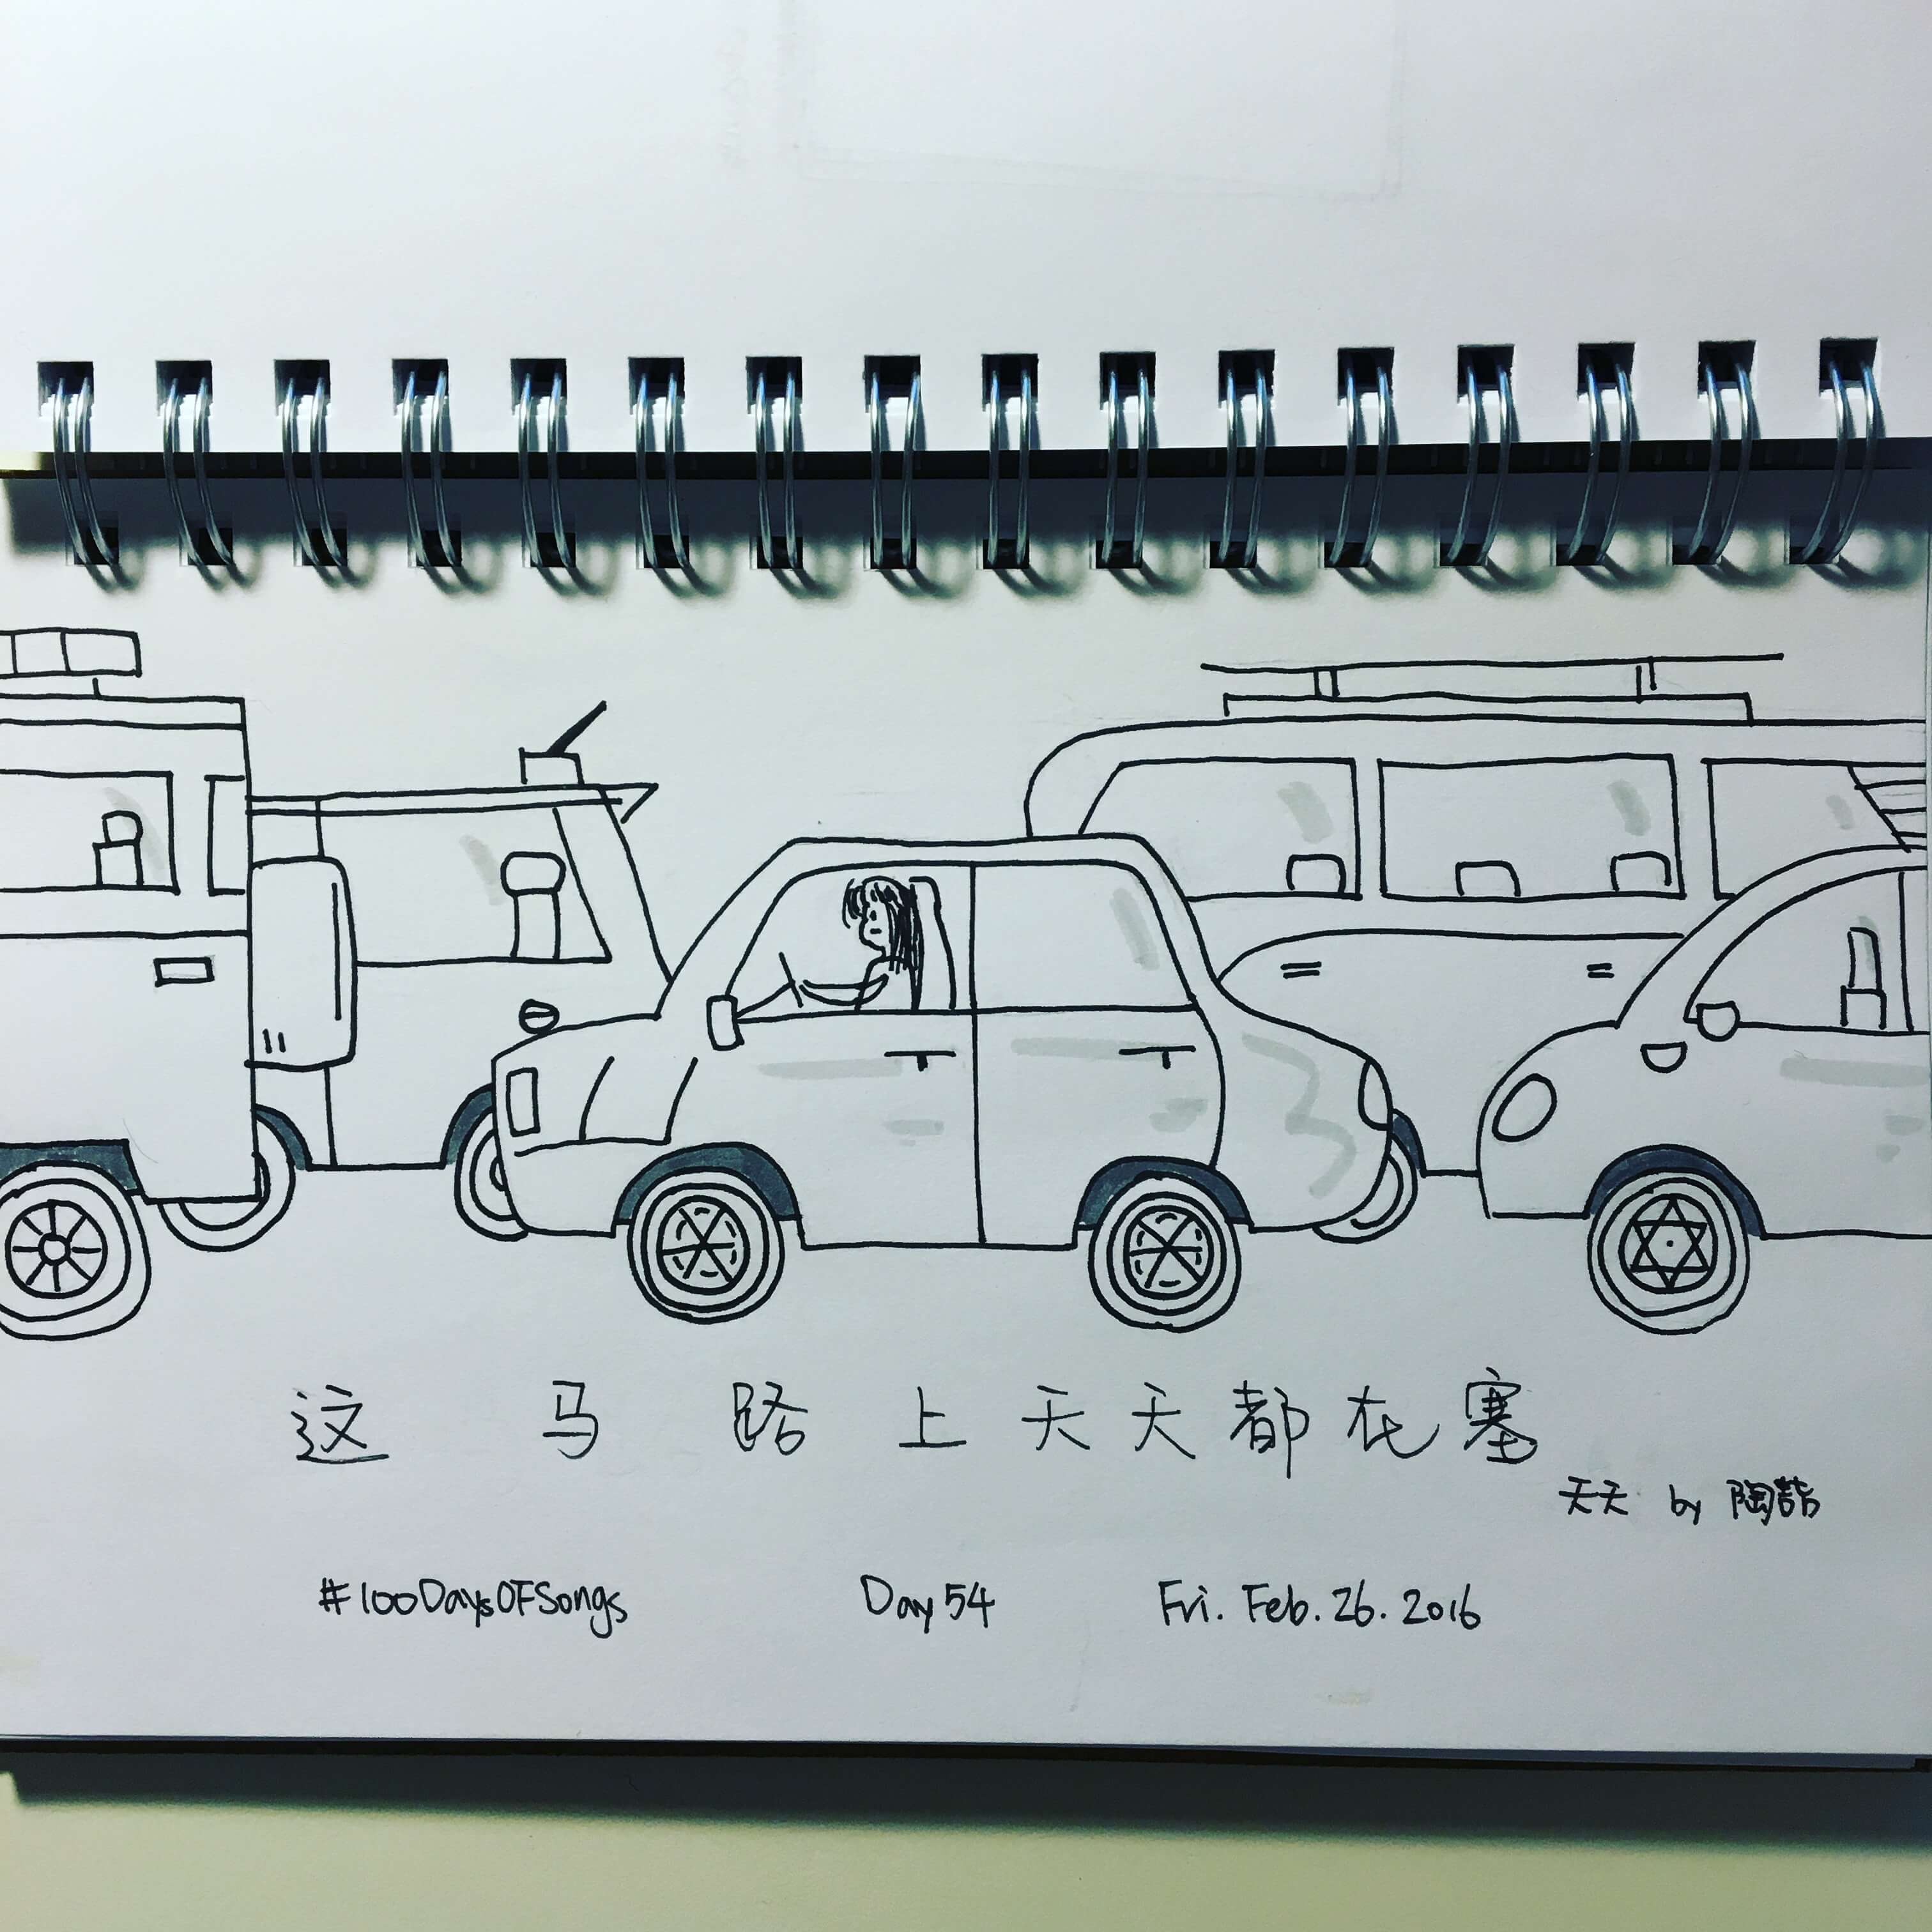 这马路上天天都在塞
天天 by 陶喆
#100DaysOfSongs Day 54 Fri. Feb. 26. 2016